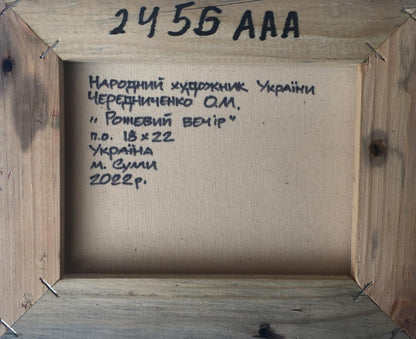 2456 AAA
Народний художник України
Чередниченко О.М.
„ Рожевий вечір"
п.о. 18 x 22
Україна
м. Суми
2022р.